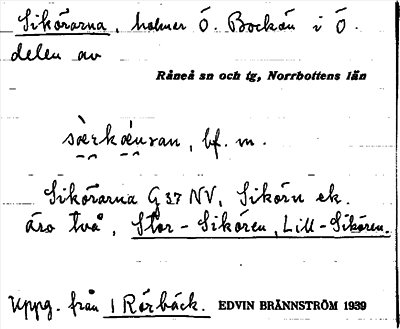 Sikörarna, holmar Ö. Bockön i Ö.
delen av
Råneå sn och tg, Norrbottens län
bf. m.
Sikörarna G 37 NV, Sikörn ek.
äro två, Stor-Sikören, Lill-Sikören.
Uppg. från 1 Rörbäck. EDVIN BRÄNNSTRÖM 1939